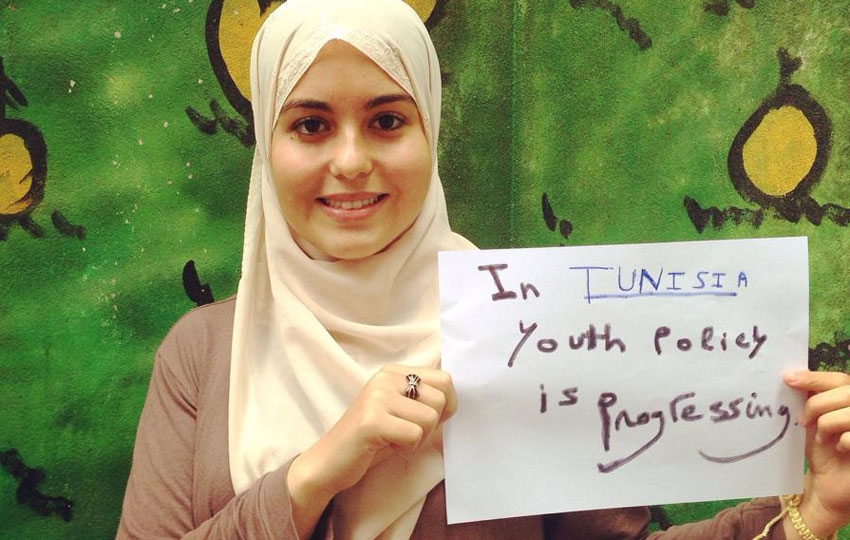 In TUNISIA
Youth Policy
is Progressing.